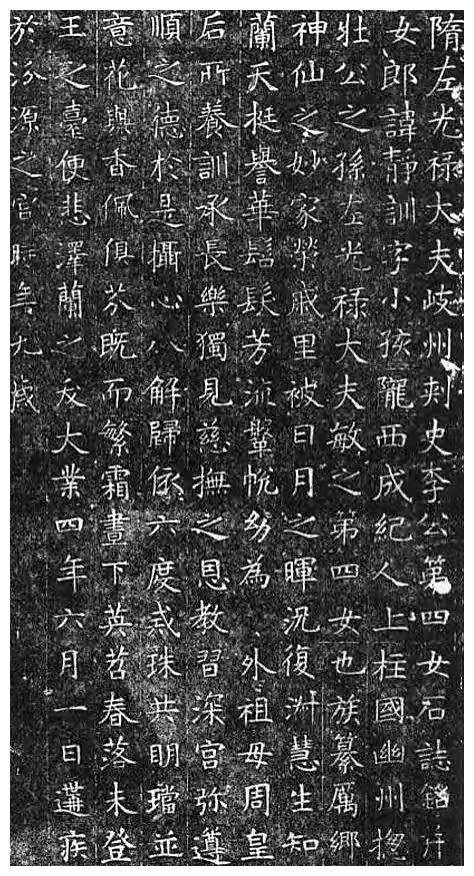 隋左光祿大夫岐州刾史李公第四女石誌銘并
女郎諱靜訓字小孩隴西成紀人上柱國幽州揔
壯公之孫左光祿大夫敏之第四女也族纂厲鄉
神仙之妙家榮戚里被日月之暉況復淵慧生知
蘭天挺譽華髫髮芳流鞶帨幼為外祖母周皇
后所養訓承長樂獨見慈撫之恩教習深宮弥遵
順之德於是攝心八解歸依六度戒珠共明璫並
意花與香佩俱芬既而繁霜晝下英苕春落未登
王之臺便悲澤蘭之夭大業四年六月一日遘疾
於汾源之宮時年九歲